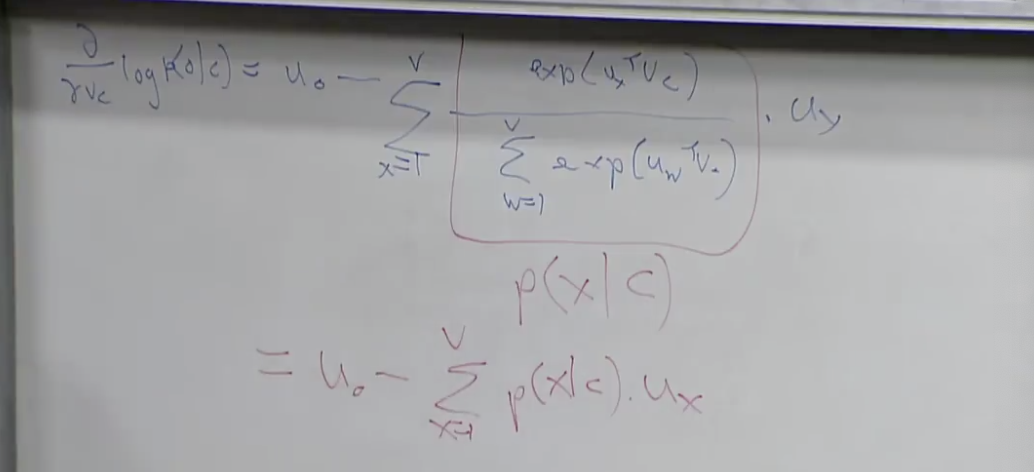 ∂/∂v_c log p(o|c) = u_o − ∑_{x=1}^{V} [ exp(u_x^T v_c) / ∑_{w=1}^{V} exp(u_w^T v_c) ] · u_x
p(x|c)
= u_o − ∑_{x=1}^{V} p(x|c) · u_x